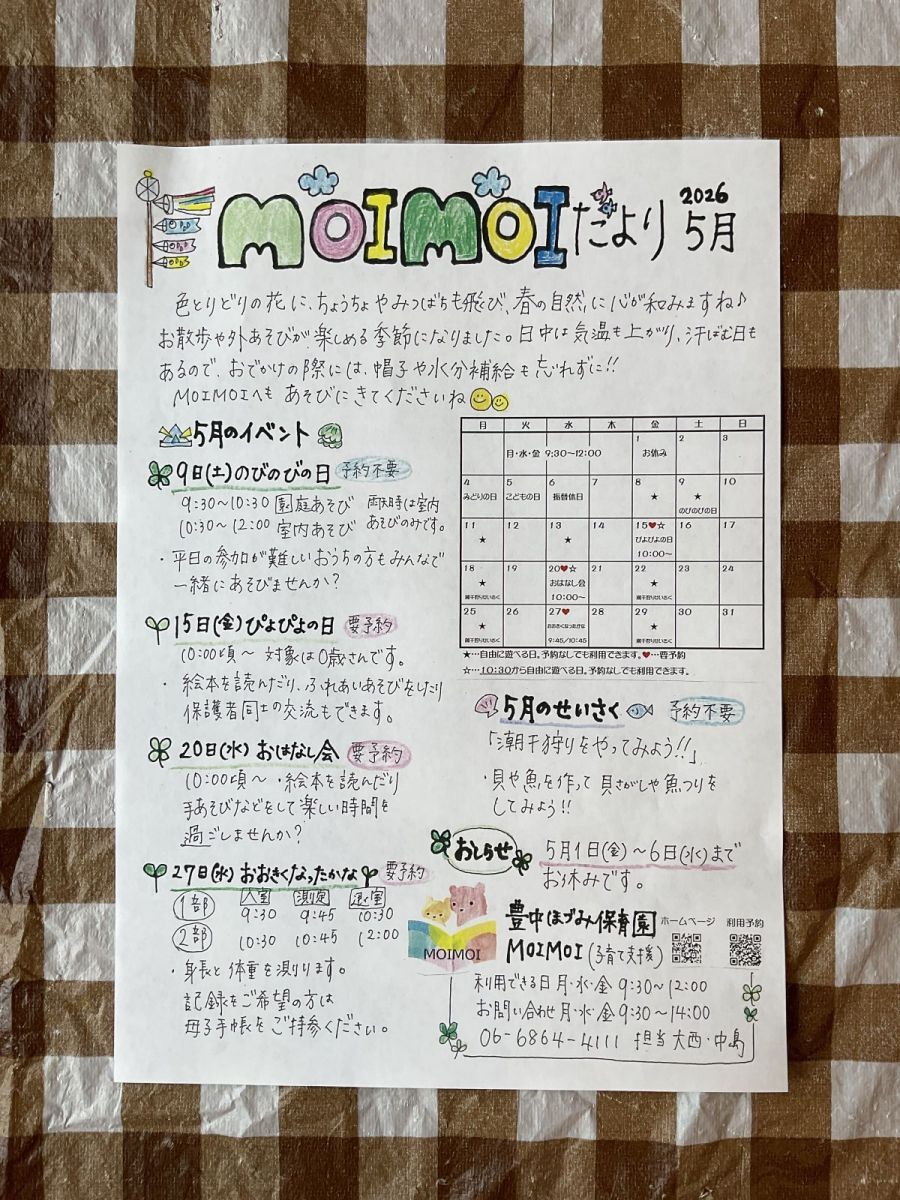 MOIMOIだより 2026 5月
色とりどりの花に、ちょうちょやみつばちも飛び、春の自然に心が和みますね♪
お散歩や外あそびが楽しめる季節になりました。日中は気温も上がり、汗ばむ日も
あるので、おでかけの際には、帽子や水分補給も忘れずに!!
MOIMOIへも あそびにきてくださいね
5月のイベント
9日(土)のびのびの日 予約不要
9:30〜10:30 園庭あそび 雨天時は室内
10:30〜12:00 室内あそび あそびのみです。
・平日の参加が難しいおうちの方もみんなで
一緒にあそびませんか?
15日(金)ぴよぴよの日 要予約
10:00頃〜 対象は0歳さんです。
・絵本を読んだり、ふれあいあそびをしたり
保護者同士の交流もできます。
20日(水) おはなし会 要予約
10:00頃〜 ・絵本を読んだり
手あそびなどをして楽しい時間を
過ごしませんか?
27日(水) おおきくなったかな 要予約
入室 測定 退室
1部 9:30 9:45 10:30
2部 10:30 10:45 12:00
・身長と体重を測ります。
記録をご希望の方は
母子手帳をご持参ください。
月 火 水 木 金 土 日
月・水・金 9:30〜12:00
1 2 3
お休み
4 5 6 7 8 9 10
みどりの日 こどもの日 振替休日 ★ ★
のびのびの日
11 12 13 14 15♥☆ 16 17
★ ★ ぴよぴよの日
10:00〜
18 19 20♥☆ 21 22 23 24
★ おはなし会 ★
潮干狩りせいさく 10:00〜 潮干狩りせいさく
25 26 27♥ 28 29 30 31
★ おおきくなったかな ★
潮干狩りせいさく 9:45/10:45 潮干狩りせいさく
★…自由に遊べる日。予約なしでも利用できます。♥…要予約
☆…10:30から自由に遊べる日。予約なしでも利用できます。
5月のせいさく 予約不要
「潮干狩りをやってみよう!!」
・貝や魚を作って 貝さがしや魚つりを
してみよう!!
おしらせ 5月1日(金)〜6日(水)まで
お休みです。
MOIMOI
豊中ほづみ保育園 ホームページ 利用予約
MOIMOI(子育て支援)
利用できる日 月・水・金 9:30〜12:00
お問い合わせ 月・水・金 9:30〜14:00
06-6864-4111 担当 大西・中島